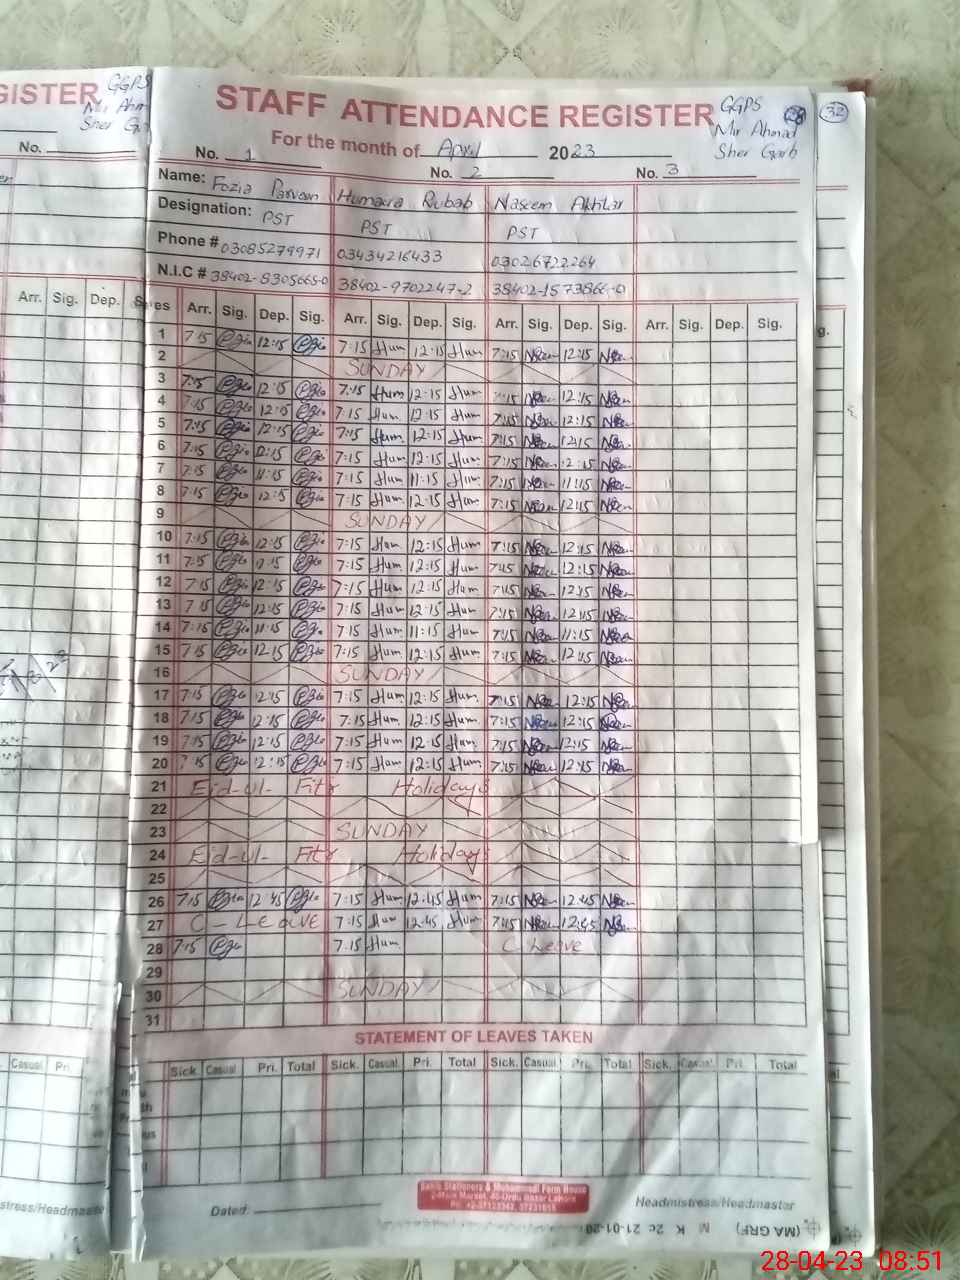 GISTER
GGPS
Mir Ahm
Sher G
No.
STAFF ATTENDANCE REGISTER
GGPS
Mir Ahmad
Sher Garb
32
For the month of April 2023
No. 1 No. 2 No. 3
Name: Fozia Parveen Humaira Rubab Naseem Akhtar
Designation: PST PST PST
Phone # 03085279971 03434216433 03026722264
N.I.C # 38402-8305665-0 38402-9702247-2 38402-1573866-0
Arr. Sig. Dep. Arr. Sig. Dep. Sig. Arr. Sig. Dep. Sig. Arr. Sig. Dep. Sig. Arr. Sig. Dep. Sig.
1 7:15 12:15 7:15 Hum 12:15 Hum 7:15 12:15
2 SUNDAY
3 7:15 12:15 7:15 Hum 12:15 Hum 7:15 12:15
4 7:15 12:15 7:15 Hum 12:15 Hum 7:15 12:15
5 7:15 12:15 7:15 Hum 12:15 Hum 7:15 12:15
6 7:15 12:15 7:15 Hum 12:15 Hum 7:15 12:15
7 7:15 11:15 7:15 Hum 11:15 Hum 7:15 11:15
8 7:15 12:15 7:15 Hum 12:15 Hum 7:15 12:15
9 SUNDAY
10 7:15 12:15 7:15 Hum 12:15 Hum 7:15 12:15
11 7:15 12:15 7:15 Hum 12:15 Hum 7:15 12:15
12 7:15 12:15 7:15 Hum 12:15 Hum 7:15 12:15
13 7:15 12:15 7:15 Hum 12:15 Hum 7:15 12:15
14 7:15 11:15 7:15 Hum 11:15 Hum 7:15 11:15
15 7:15 12:15 7:15 Hum 12:15 Hum 7:15 12:15
16 SUNDAY
17 7:15 12:15 7:15 Hum 12:15 Hum 7:15 12:15
18 7:15 12:15 7:15 Hum 12:15 Hum 7:15 12:15
19 7:15 12:15 7:15 Hum 12:15 Hum 7:15 12:15
20 7:15 12:15 7:15 Hum 12:15 Hum 7:15 12:15
21 Eid-ul-Fitr Holidays
22
23 SUNDAY
24 Eid-ul-Fitr Holidays
25
26 7:15 12:45 7:15 Hum 12:45 Hum 7:15 12:45
27 C-Leave 7:15 Hum 12:45 Hum 7:15 12:45
28 7:15 7:15 Hum C Leave
29
30 SUNDAY
31
STATEMENT OF LEAVES TAKEN
Casual Pri. Sick Casual Pri. Total Sick. Casual Pri. Total Sick. Casual Pri. Total Sick. Casual Pri. Total
Sakib Stationers & Muhammadi Form House
2-Main Market, 40-Urdu Bazar Lahore
stress/Headmaste Dated: Headmistress/Headmaster
(MA GRF) M K 2c 21-01-20
28-04-23 08:51